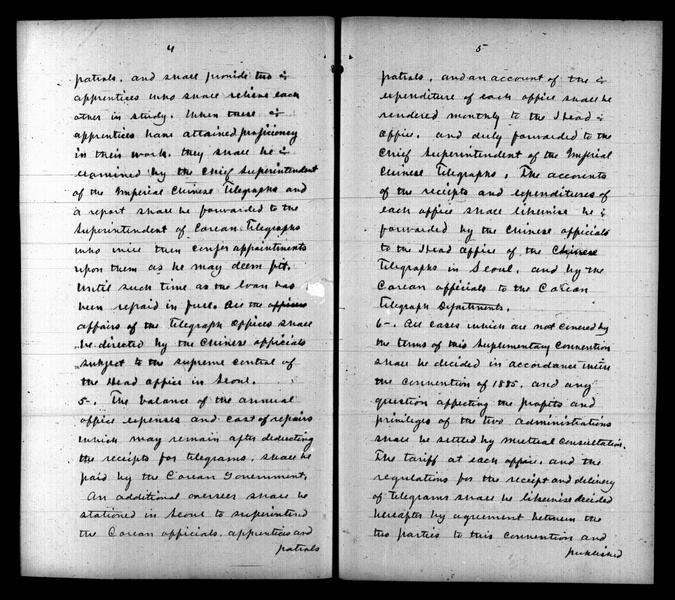 4
patrols, and shall provide two
apprentices who shall relieve each
other in study. When these
apprentices have attained proficiency
in their work, they shall be
examined by the Chief Superintendent
of the Imperial Chinese Telegraphs and
a report shall be forwarded to the
Superintendent of Corean Telegraphs
who will then confer appointments
upon them as he may deem fit.
Until such time as the loan has
been repaid in full. All the offices
affairs of the Telegraph offices shall
be directed by the Chinese officials
subject to the supreme control of
the Head office in Seoul.
5-. The balance of the annual
office expenses and cost of repairs
which may remain after deducting
the receipts for telegrams, shall be
paid by the Corean Government.
An additional overseer shall be
stationed in Seoul to superintend
the Corean officials, apprentices and
patrols
5
patrols, and an account of the
expenditure of each office shall be
rendered monthly to the Head
office, and duly forwarded to the
Chief Superintendent of the Imperial
Chinese Telegraphs. The accounts
of the receipts and expenditures of
each office shall likewise be
forwarded by the Chinese officials
to the Head office of the Chinese
Telegraphs in Seoul, and by the
Corean officials to the Corean
Telegraph Departments.
6-. All cases which are not covered by
the terms of this Suplimentary Convention
shall be decided in accordance with
the Convention of 1885. and any
question affecting the profits and
privileges of the two administrations
shall be settled by mutual consultation.
The tariff at each office, and the
regulations for the receipt and delivery
of telegrams shall be likewise decided
hereafter by agreement between the
two parties to this convention and
published